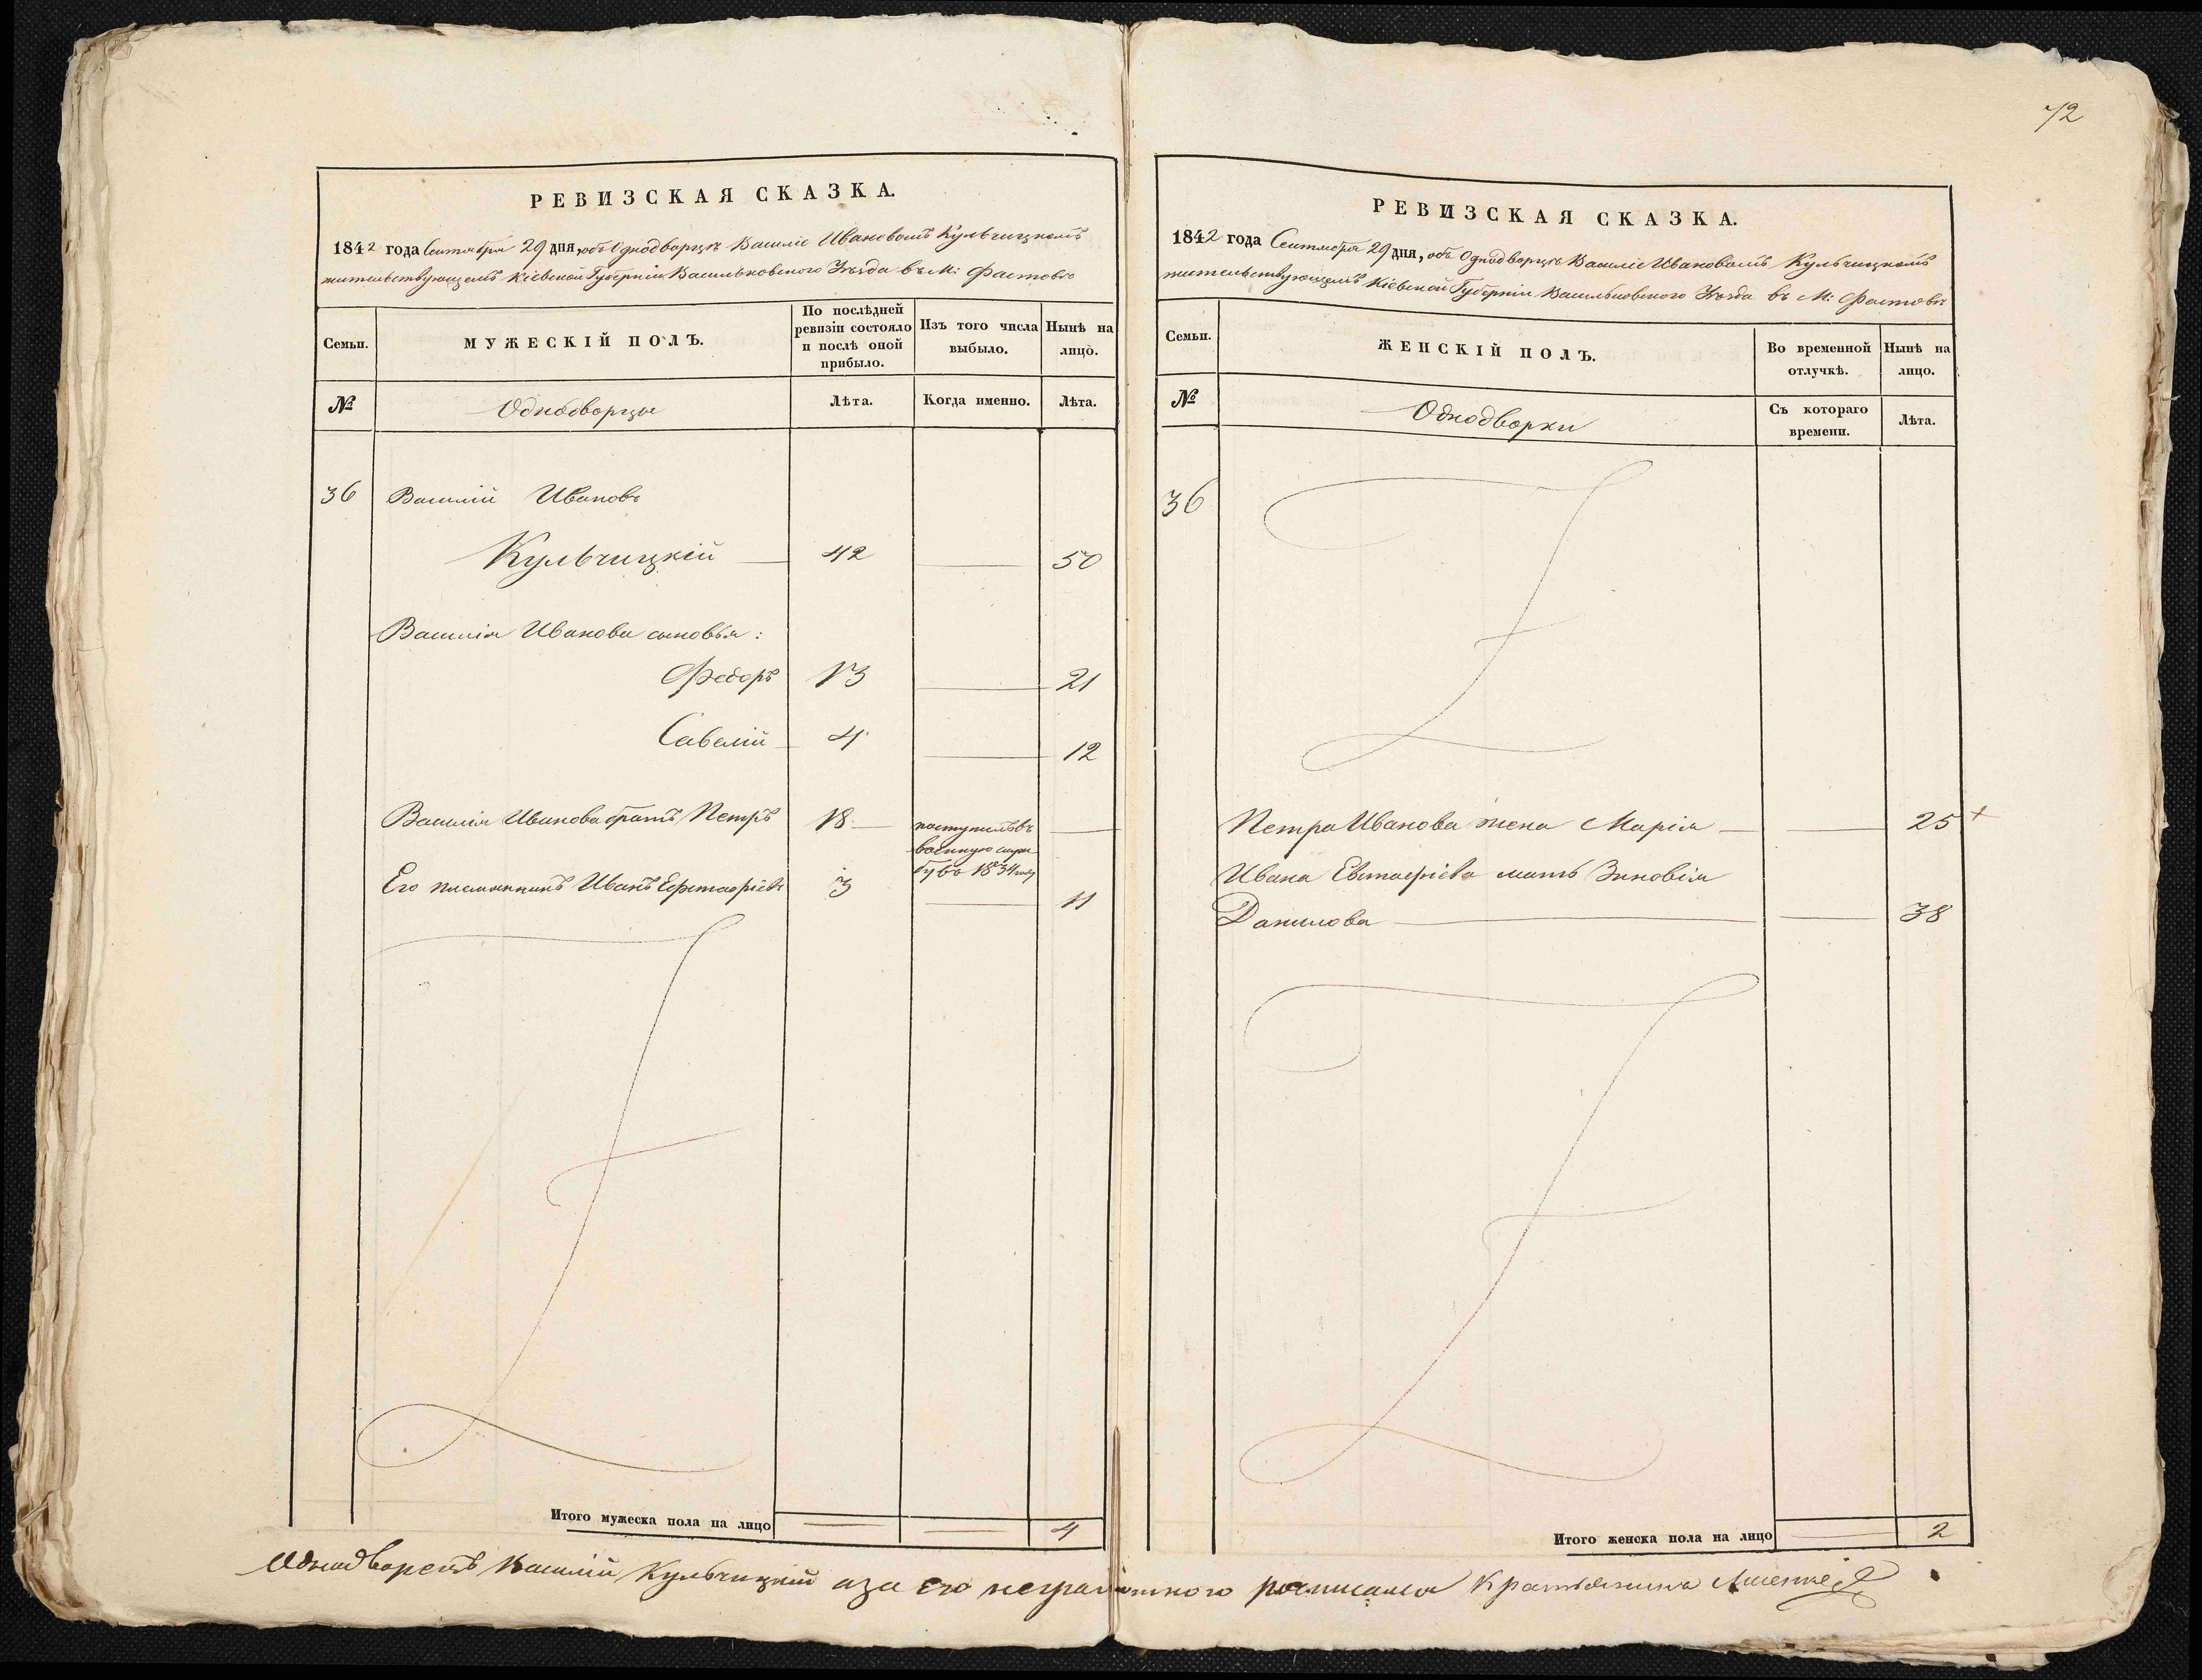 72
РЕВИЗСКАЯ СКАЗКА.
1842 года Сентября 29 дня, объ Однодворцѣ Василіе Ивановомъ Кульчицкомъ
жительствующемъ Кіевской Губерніи Васильковского Уѣзда въ М: Фастовѣ
Семьи.
МУЖЕСКІЙ ПОЛЪ.
По послѣдней
ревизіи состояло
и послѣ оной
прибыло.
Изъ того числа
выбыло.
Нынѣ на
лицо.
№
Однодворцы
Лѣта.
Когда именно.
Лѣта.
36 Василій Ивановъ
Кульчицкій 42 50
Василія Иванова сыновья:
Федоръ 13 21
Савелій 4 12
Василія Иванова братъ Петръ 18 поступилъ въ
военную служ
бу въ 1834 году
Его племянникъ Иванъ Ефстафіевъ 3 11
Итого мужеска пола на лицо 4
РЕВИЗСКАЯ СКАЗКА.
1842 года Сентября 29 дня, объ Однодворцѣ Василіе Ивановомъ Кульчицкомъ
жительствующемъ Кіевской Губерніи Васильковского Уѣзда въ М: Фастовѣ
Семьи.
ЖЕНСКІЙ ПОЛЪ.
Во временной
отлучкѣ.
Нынѣ на
лицо.
№
Однодворки
Съ котораго
времени.
Лѣта.
36
Петра Иванова жена Марія 25
Ивана Евстафіева мать Зиновія
Данилова 38
Итого женска пола на лицо 2
Однодворецъ Василій Кульчицкій аза его неграмотного росписался